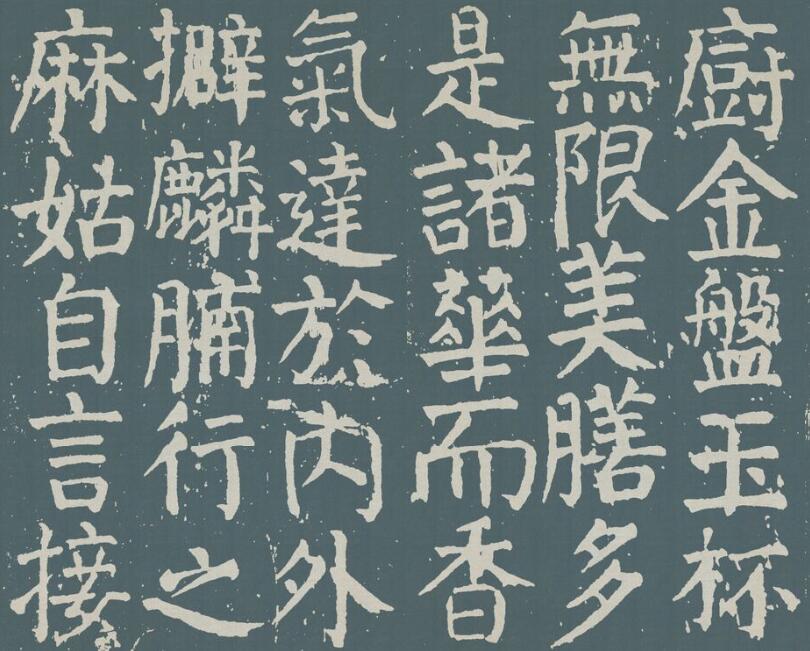 廚金盤玉杯
無限美膳多
是諸華而香
氣達於內外
擗麟脯行之
麻姑自言接